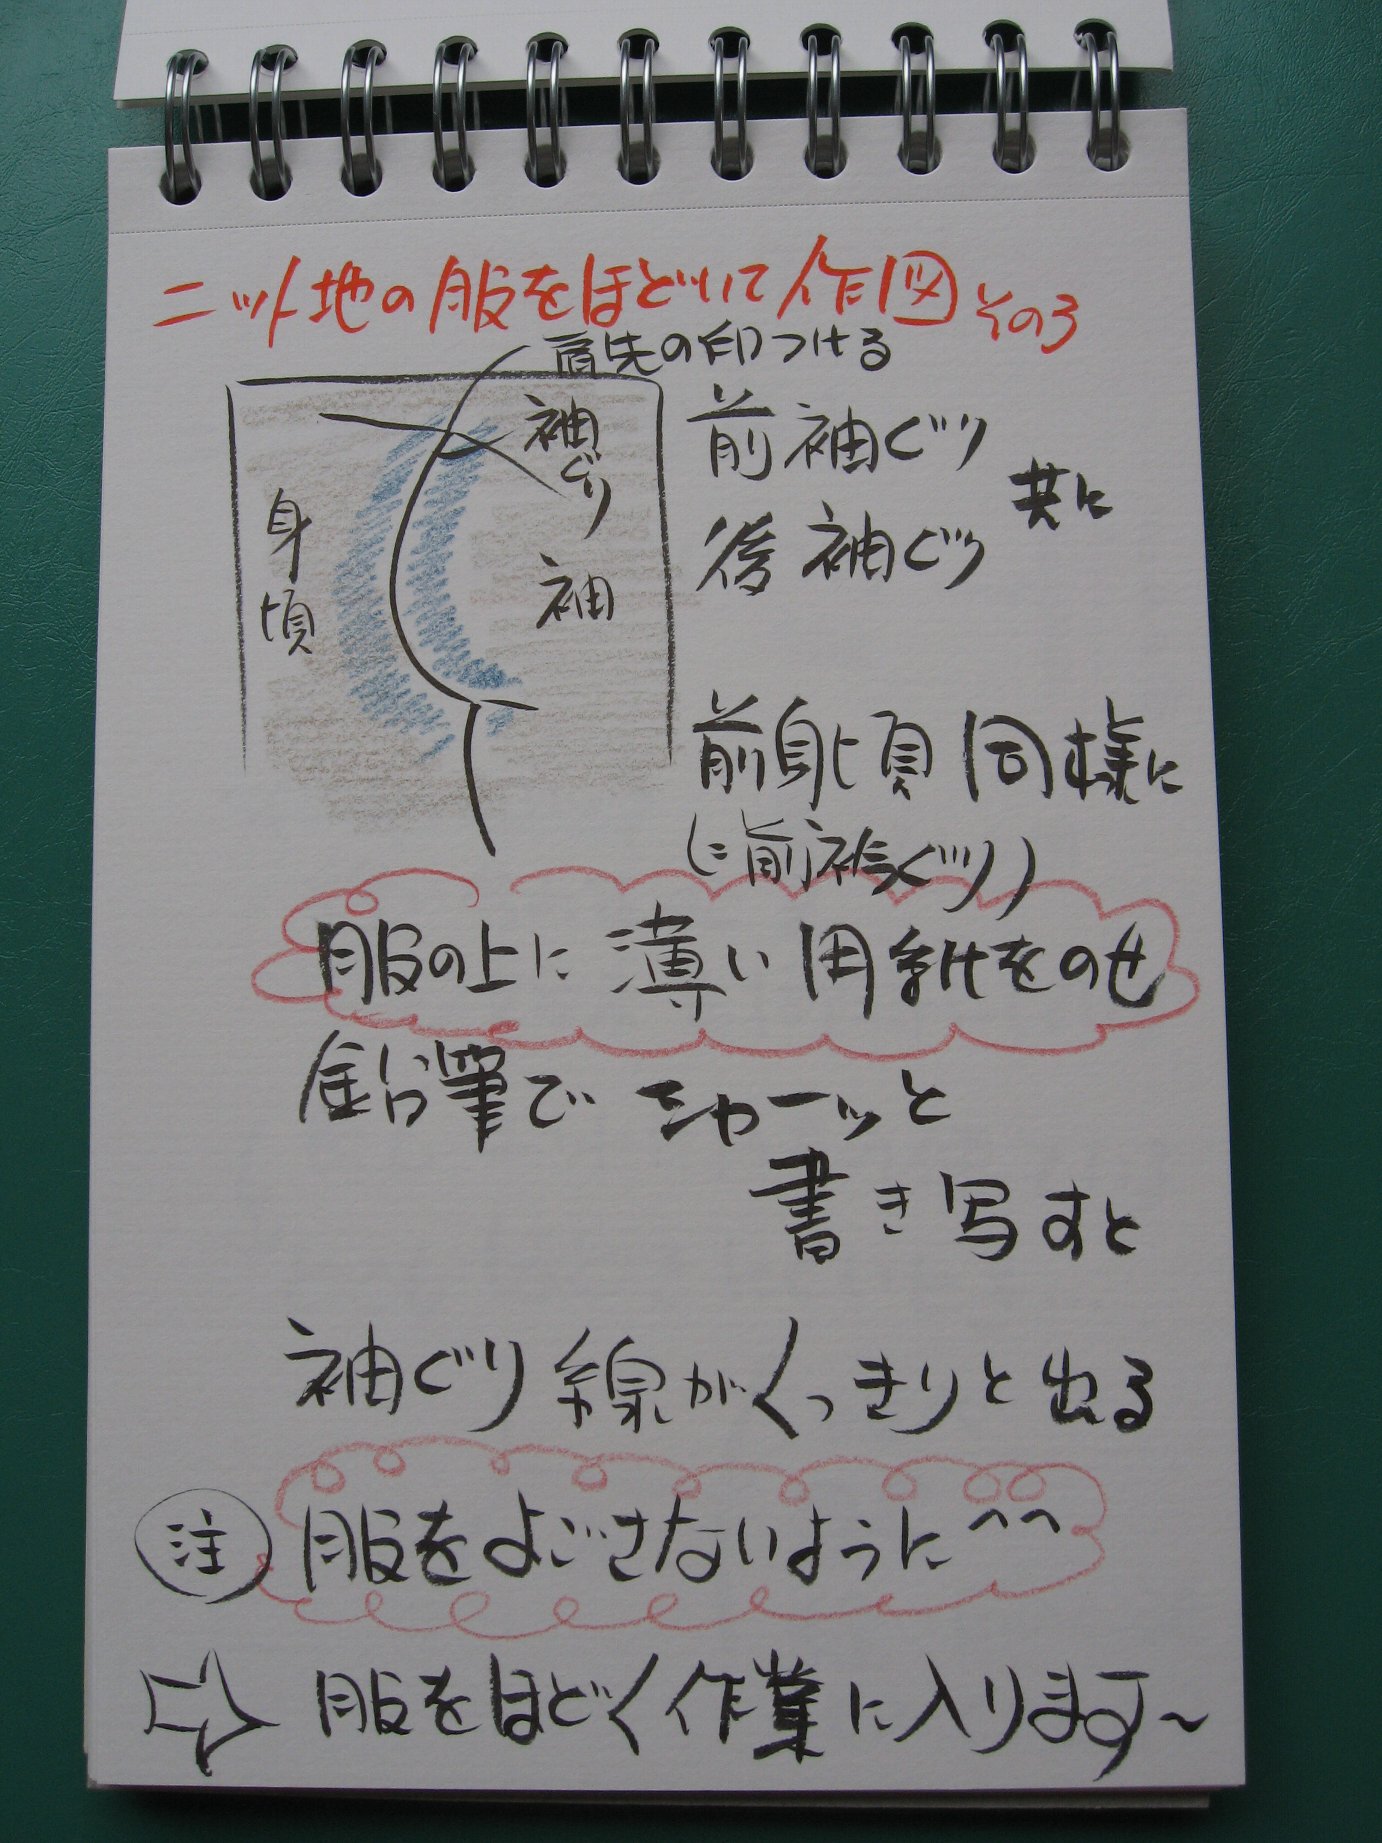 ニット地の服をほどいて作図 その3
肩先の印つける
袖ぐり
身頃
袖
前袖ぐり
後袖ぐり
共に
前身頃同様に
前袖ぐり)
服の上に薄い用紙をのせ
鉛筆でシャーッと
書き写すと
袖ぐり線がくっきりと出る
注 服をよごさないように^^
服をほどく作業に入ります～